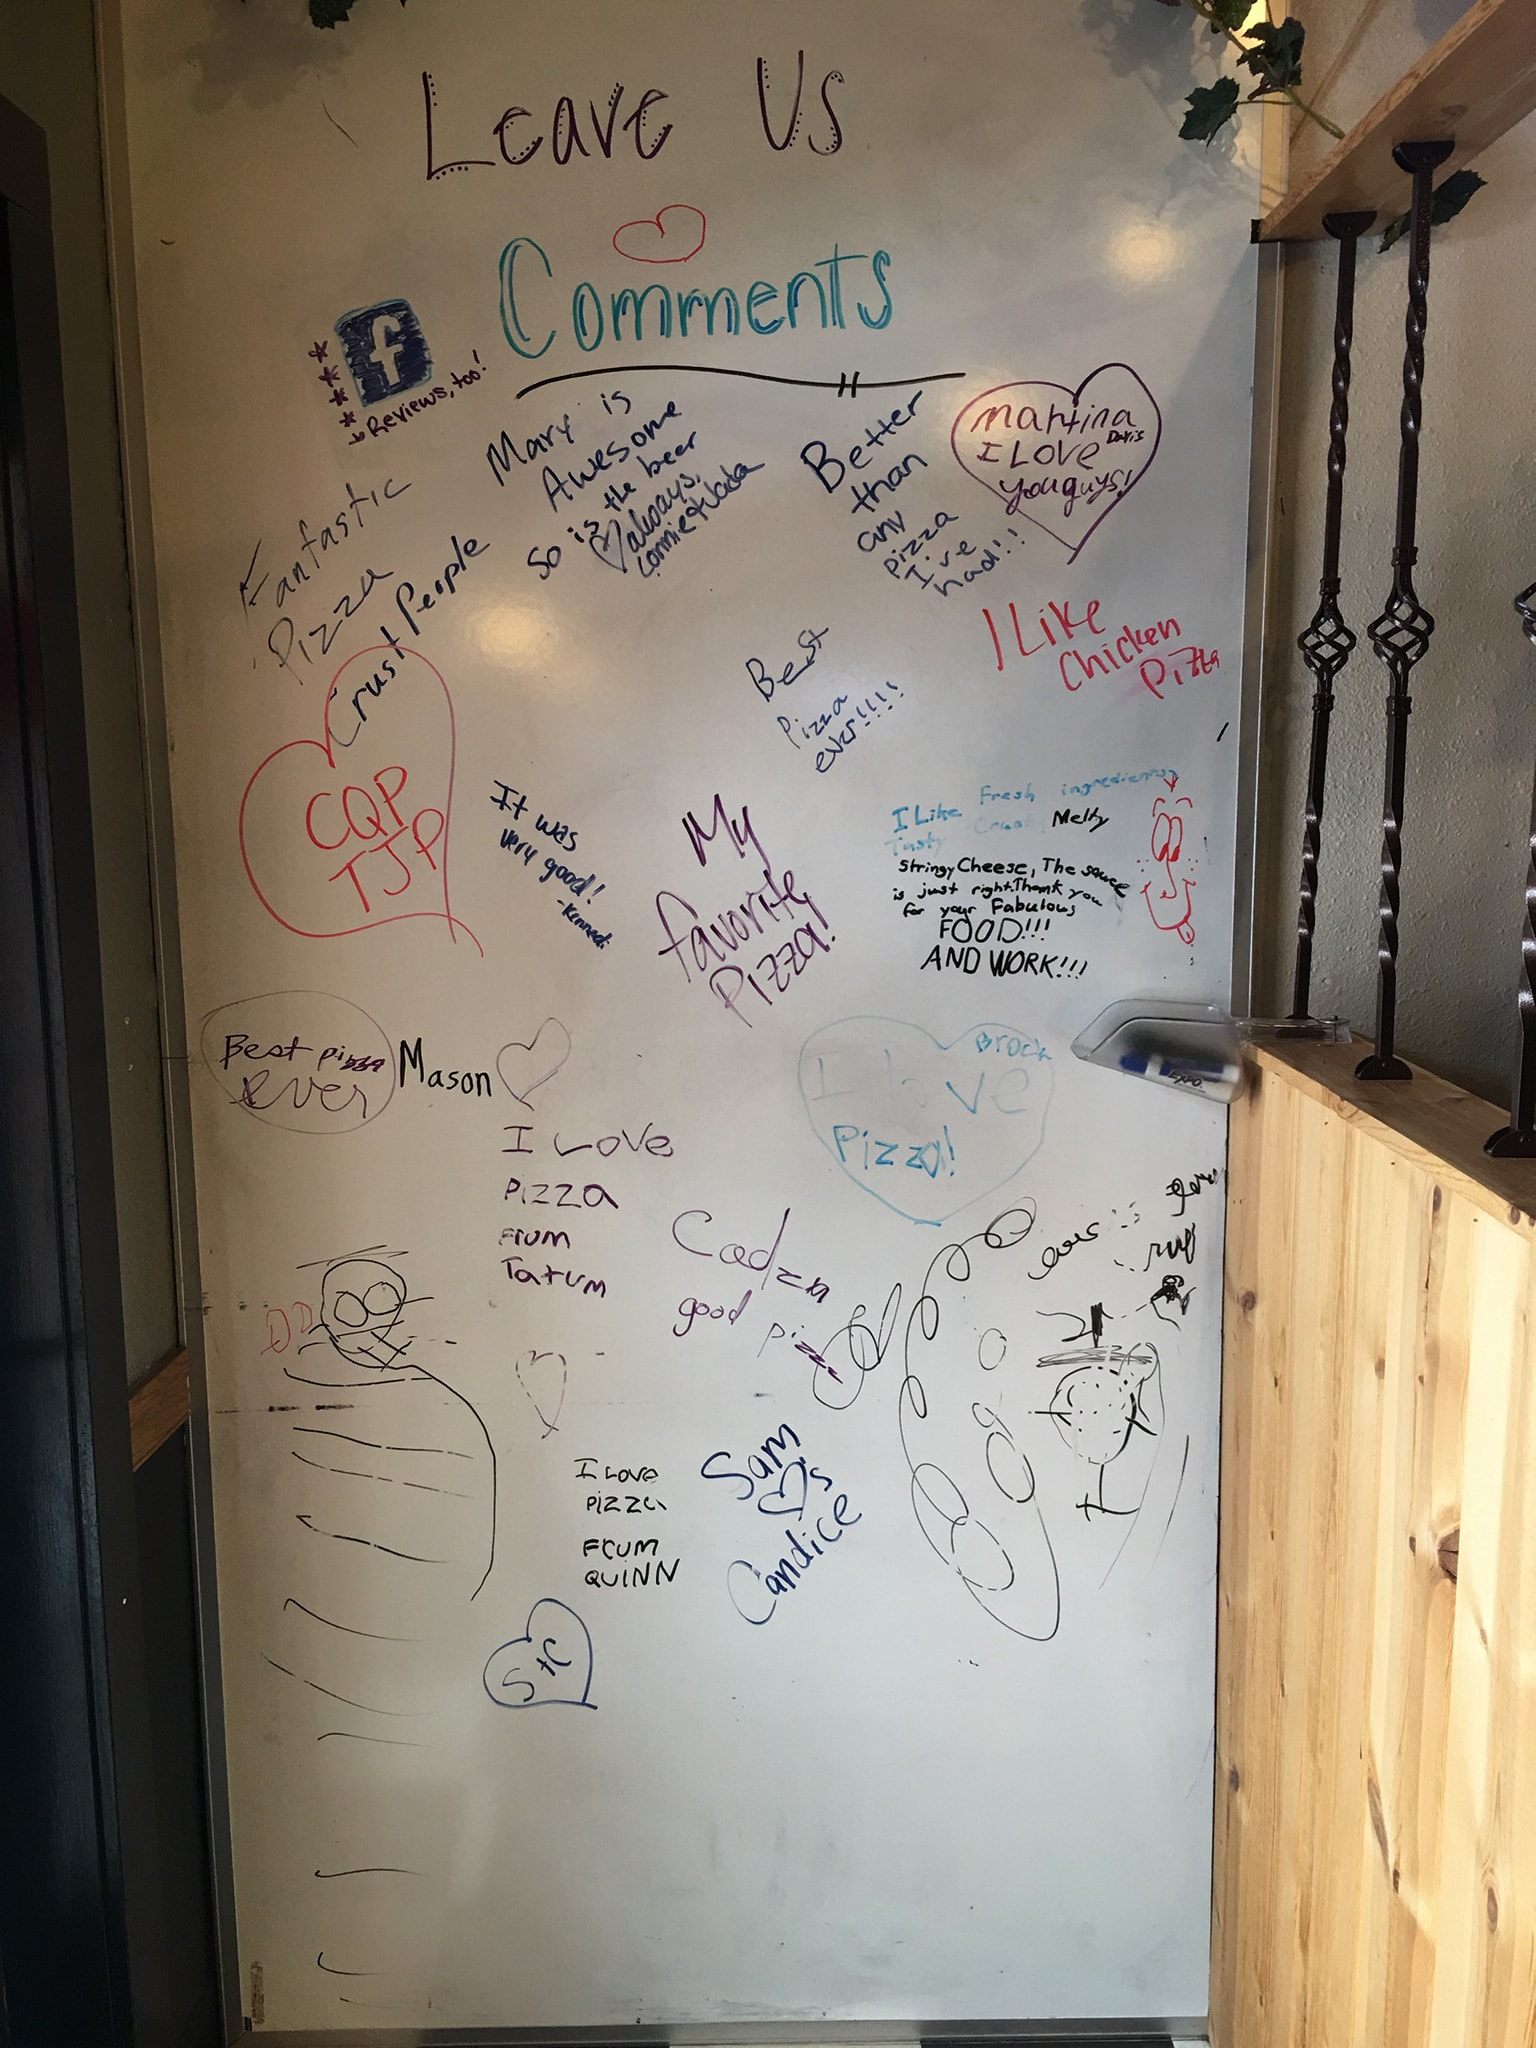 Leave Us
Comments
f
Reviews, too!
Mary is
Awesome
So is the beer
always,
Connie &
Better
than
any
pizza
I've
had!!!
Martina
Davis
I Love
you guys!
Fantastic
Pizza
Crust People
I Like
Chicken
Pizza
Best
Pizza
ever!!!!
CQP
TJP
It was
very good!
My
favorite
Pizza!
I Like Fresh ingredients
Tasty Crust, Melty
Stringy Cheese, The sauce
is just right. Thank you
for your Fabulous
FOOD!!!
AND WORK!!!
Best pizza
ever
Mason
Brock
I love
Pizza!
EXPO
I LOVE
PIZZA
FrUM
TaTUM
good pizza
I LOVE
PIZZA
FrUM
QUINN
Sam
♡'s
Candice
S+C